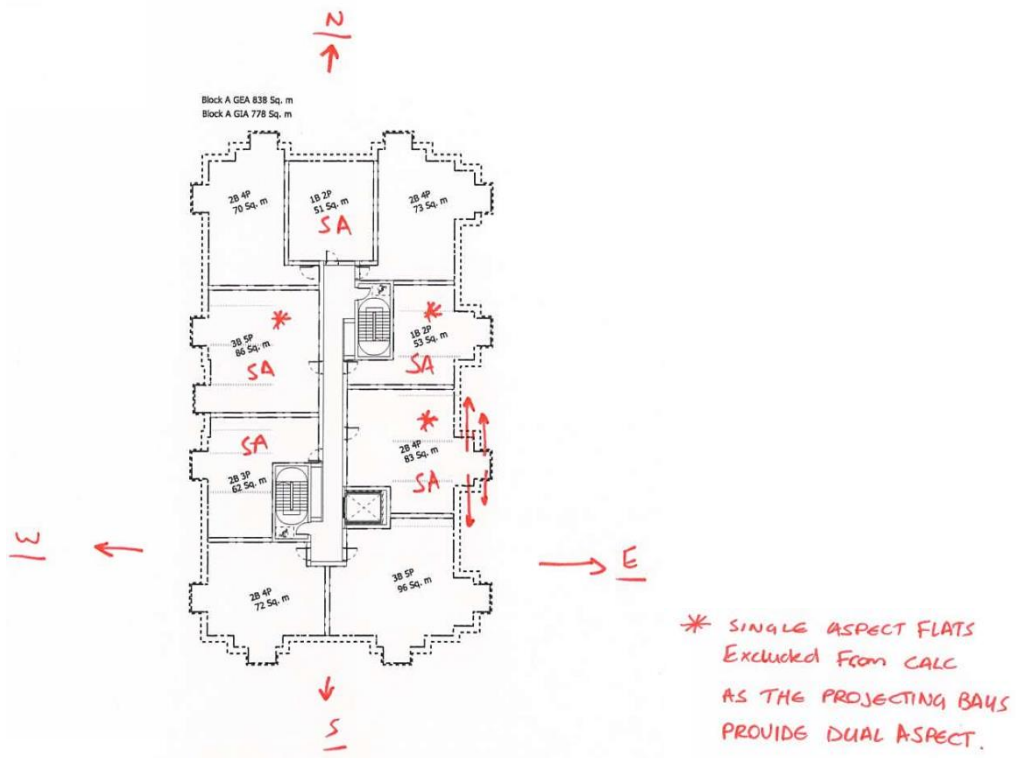 N
Block A GEA 838 Sq. m
Block A GIA 778 Sq. m
2B 4P
70 Sq. m
1B 2P
51 Sq. m
SA
2B 4P
73 Sq. m
3B 5P
86 Sq. m
SA
1B 2P
53 Sq. m
SA
SA
2B 3P
62 Sq. m
2B 4P
83 Sq. m
SA
W
E
2B 4P
72 Sq. m
3B 5P
96 Sq. m
S
* SINGLE ASPECT FLATS
Excluded From CALC
AS THE PROJECTING BAYS
PROVIDE DUAL ASPECT.